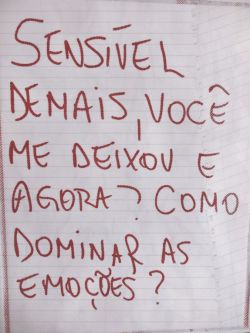 SENSÍVEL
DEMAIS, VOCÊ
ME DEIXOU E
AGORA? COMO
DOMINAR AS
EMOÇÕES?